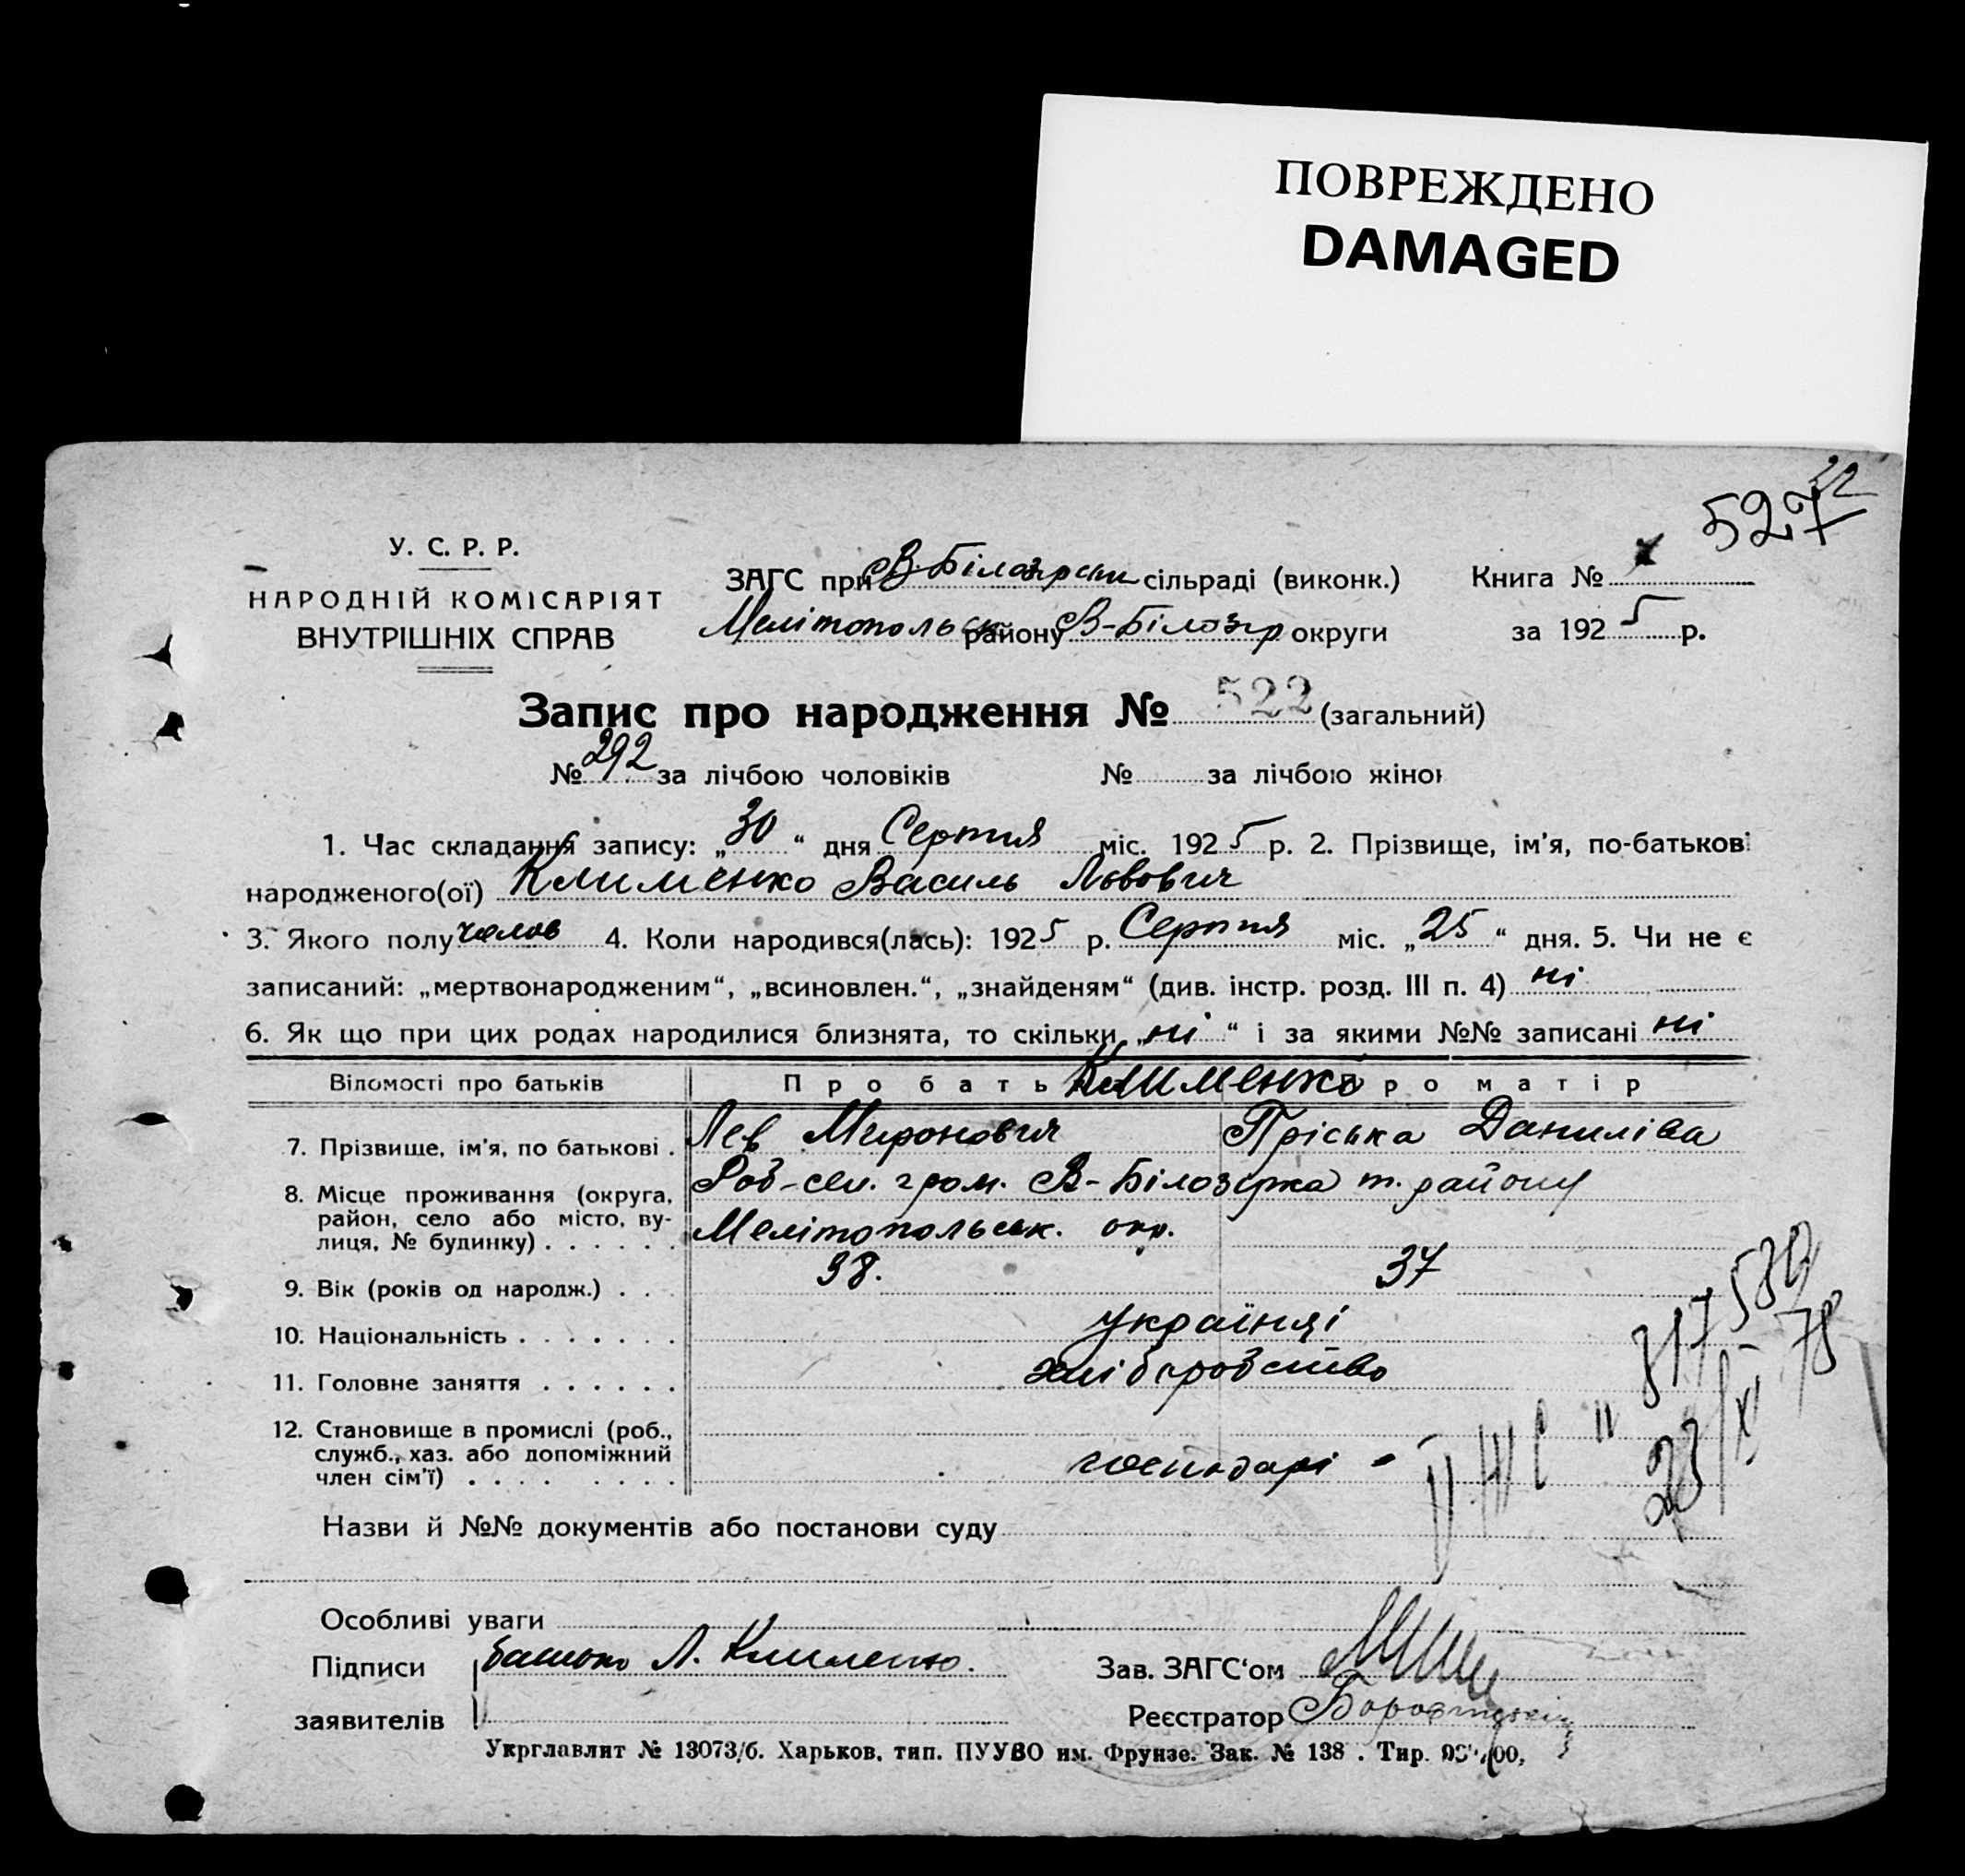 ПОВРЕЖДЕНО
DAMAGED
22
527
У. С. Р. Р.
НАРОДНІЙ КОМІСАРІЯТ
ВНУТРІШНІХ СПРАВ
ЗАГС при В-Білозерськ сільраді (виконк.)
Мелітопольськ району В-Білозер округи
Книга №
за 1925 р.
Запис про народження № 522 (загальний)
№ 292 за лічбою чоловіків № за лічбою жінок
1. Час складання запису: „30“ дня Серпня міс. 1925 р. 2. Прізвище, ім'я, по-батькові
народженого(ої) Клименко Василь Львович
3. Якого полу челов 4. Коли народився(лась): 1925 р. Серпня міс. „25“ дня. 5. Чи не є
записаний: „мертвонародженим“, „всиновлен.“, „знайденям“ (див. інстр. розд. III п. 4) ні
6. Як що при цих родах народилися близнята, то скільки „ні“ і за якими №№ записані ні
Відомості про батьків Про батька Клименко Про матір
7. Прізвище, ім'я, по батькові . Лев Миронович Пріська Даниліва
8. Місце проживання (округа, район, село або місто, вулиця, № будинку) . . . . . . Роб-сел. гром. В-Білозерка т. району
Мелітопольськ. окр.
9. Вік (років од народж.) . . . 38. 37
10. Національність . . . . . . . українці
11. Головне заняття . . . . . . хліборобство
12. Становище в промислі (роб., служб., хаз. або допоміжний член сім'ї) . . . . . . . . господарі -
Назви й №№ документів або постанови суду
Особливі уваги
Підписи батько Л. Клименко. Зав. ЗАГС'ом
заявителів Реєстратор
Укрглавлит № 13073/б. Харьков, тип. ПУУВО им. Фрунзе. Зак. № 138 . Тир.